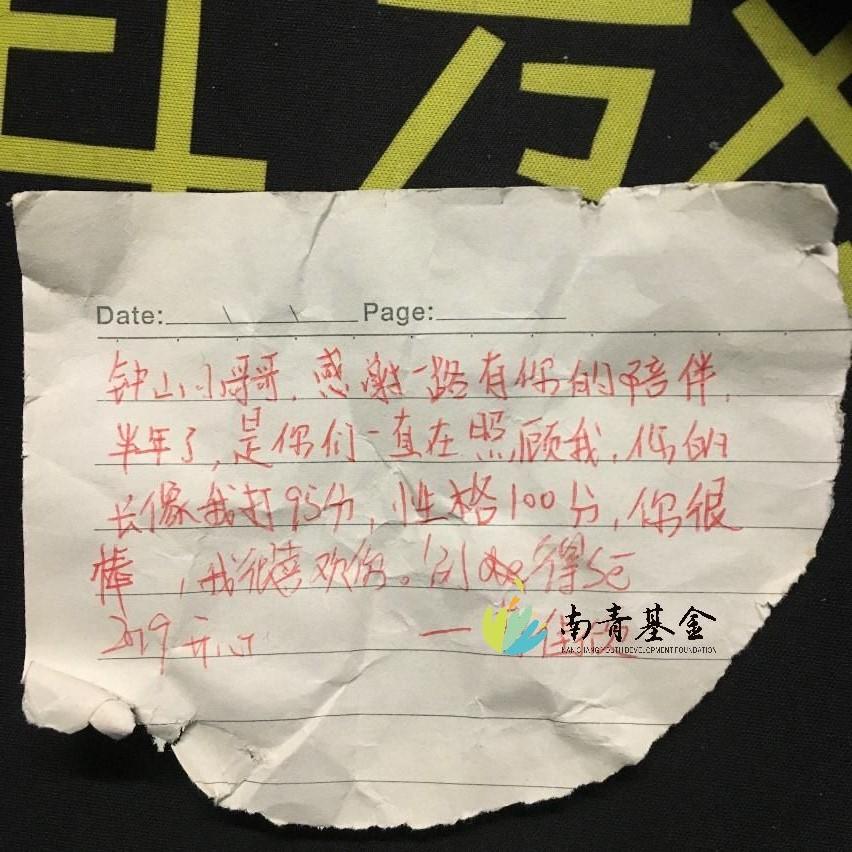 Date: Page:
钟山小哥哥,感谢一路有你的陪伴,
半年了,是你们一直在照顾我,你的
长像我打95分,性格100分,你很
棒,我很喜欢你。别 得se
2019开心
南青基金
NANCHANG YOUTH DEVELOPMENT FOUNDATION